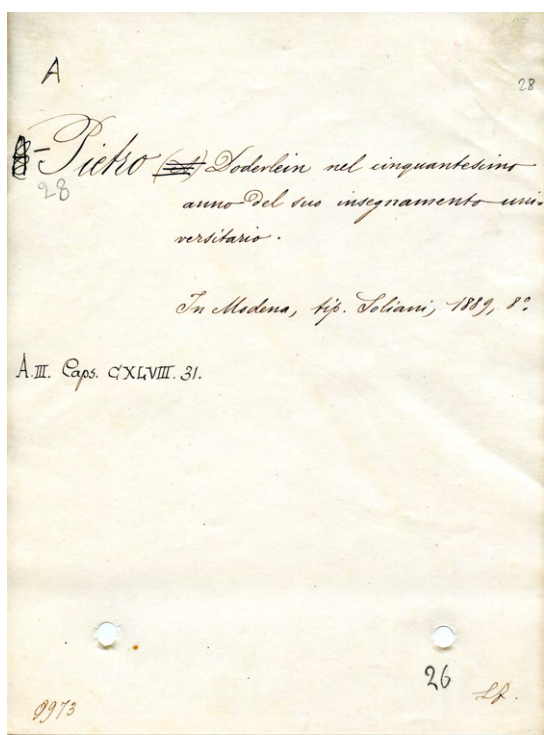 A
28
Pietro Doderlein nel cinquantesimo
28
anno del suo insegnamento uni-
versitario.
In Modena, tip. Soliani, 1889, 8º.
A.III. Caps. CXLVIII. 31.
26
8973